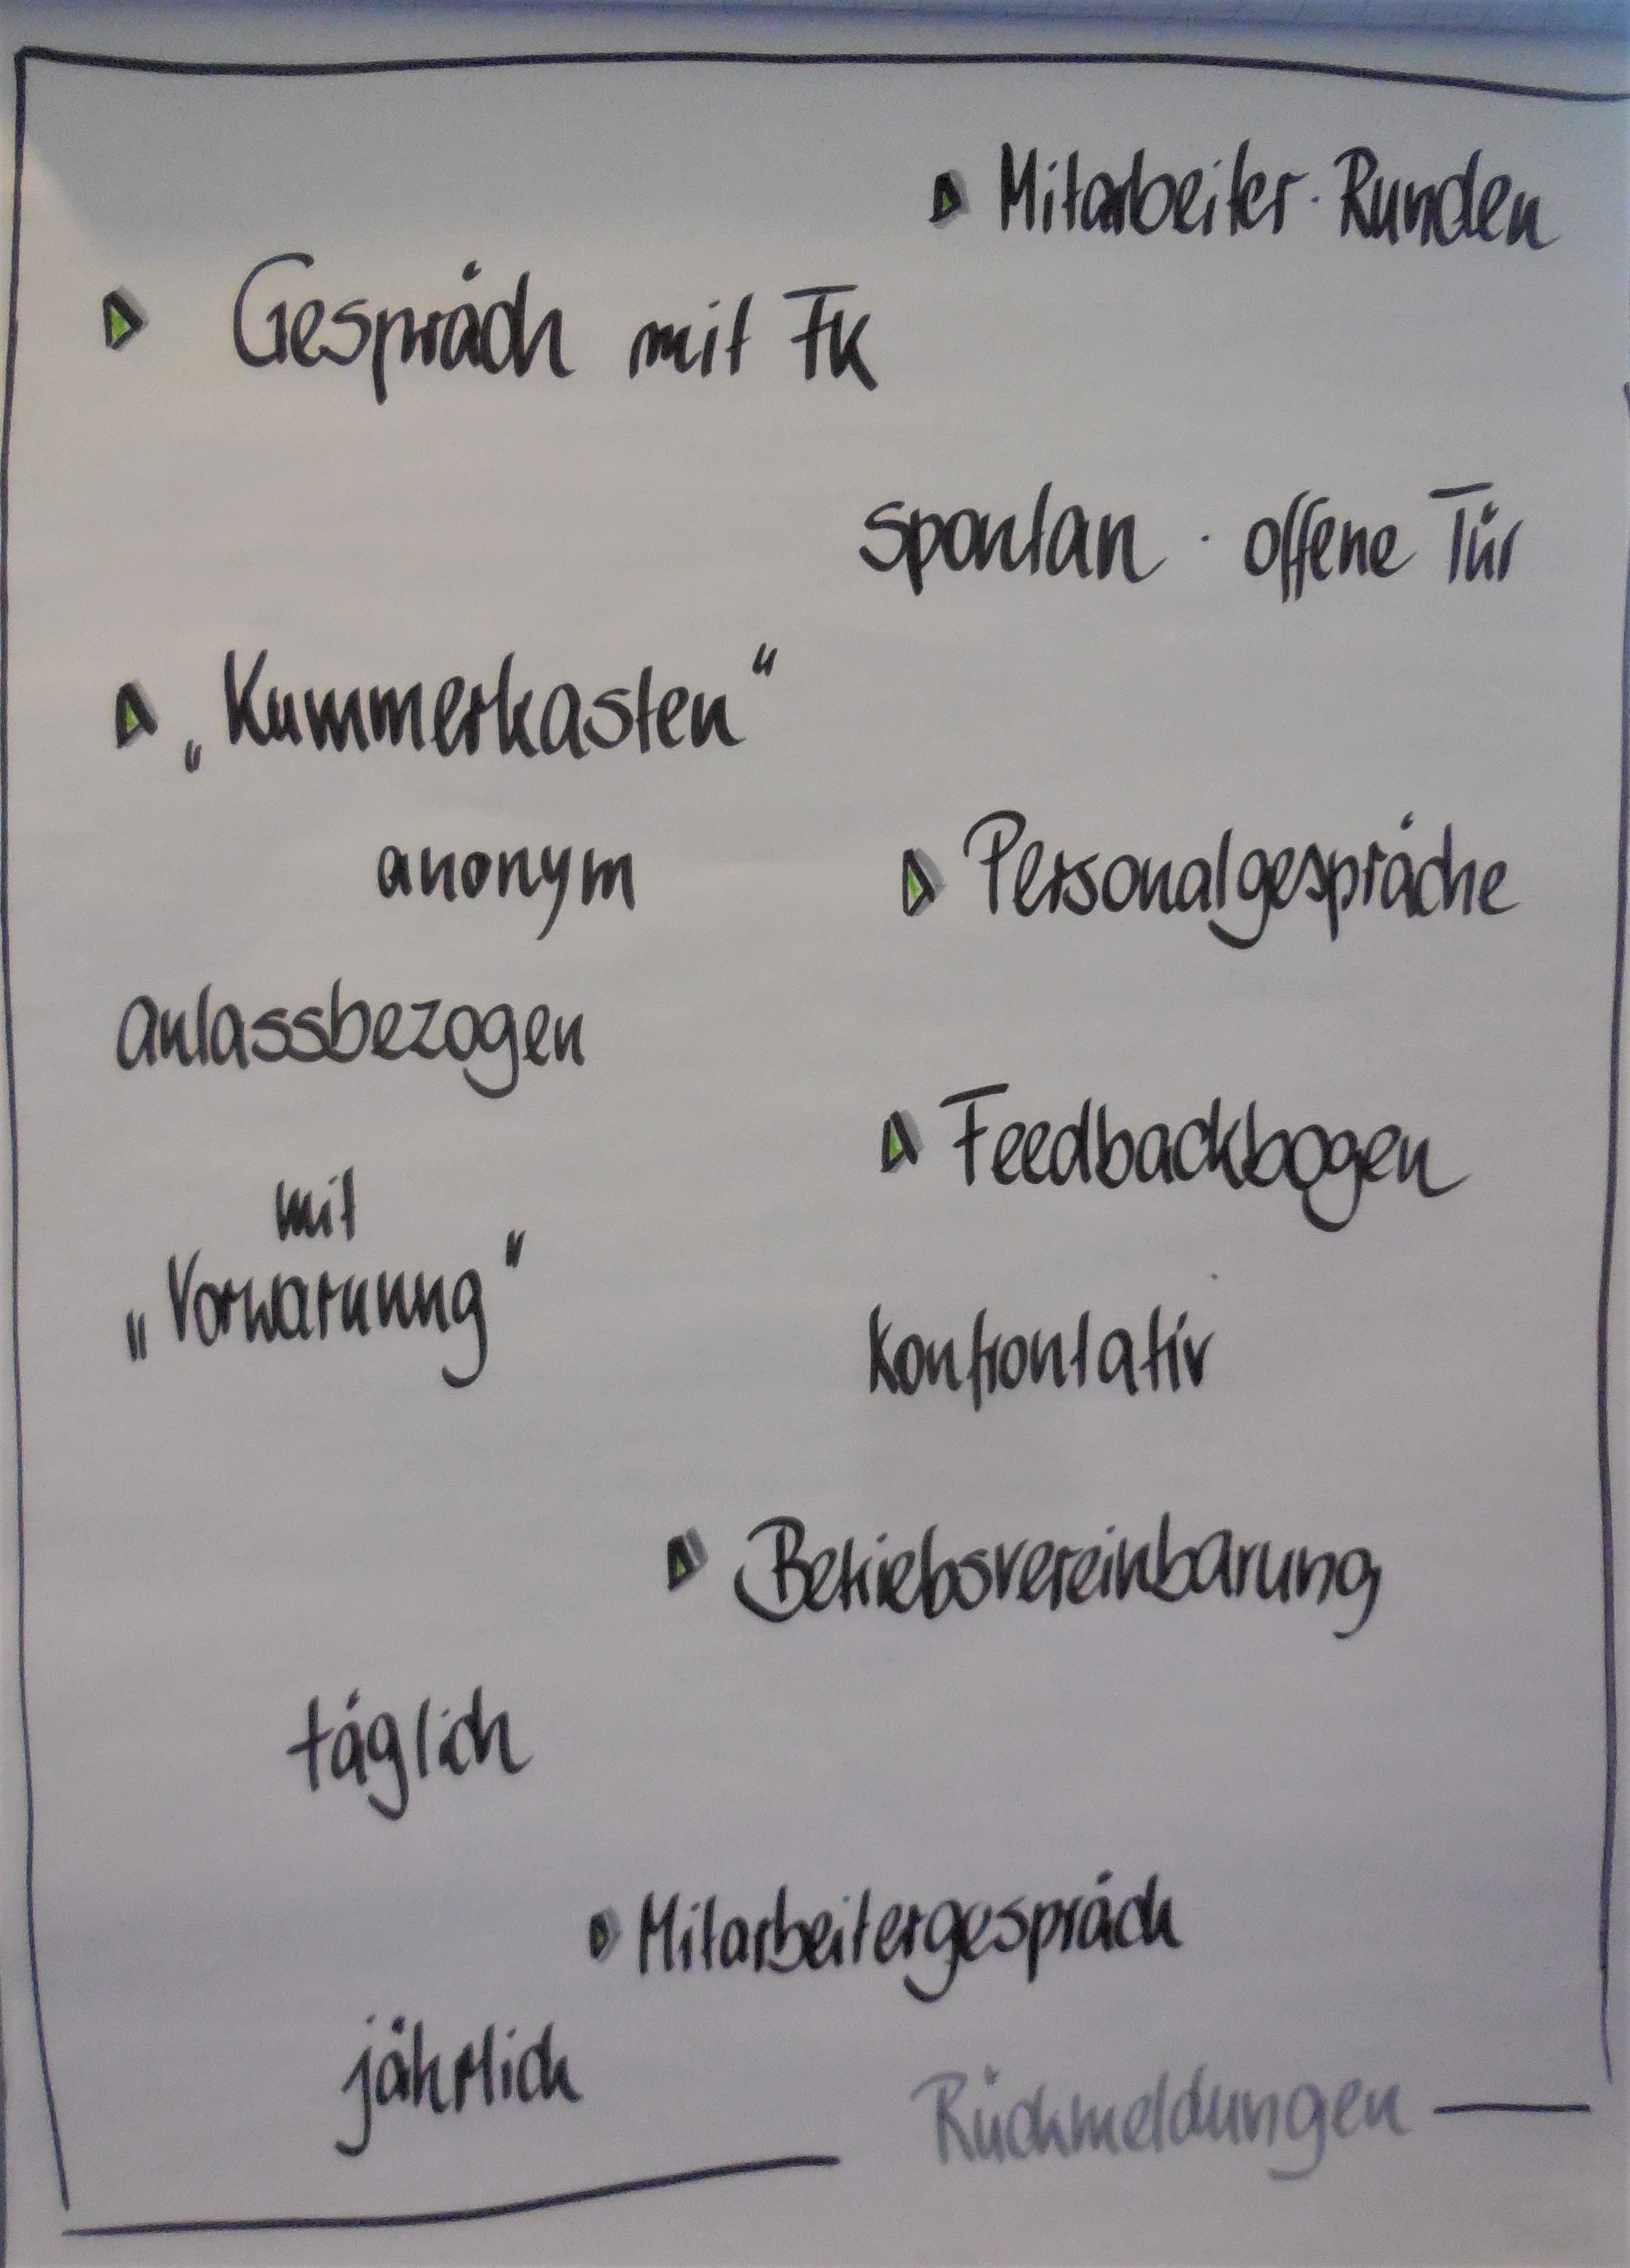 Mitarbeiter-Runden
Gespräch mit FK
spontan - offene Tür
„Kummerkasten“
anonym
Personalgespräche
anlassbezogen
Feedbackbogen
mit
„Vorwarnung“
konfrontativ
Betriebsvereinbarung
täglich
Mitarbeitergespräch
jährlich
Rückmeldungen